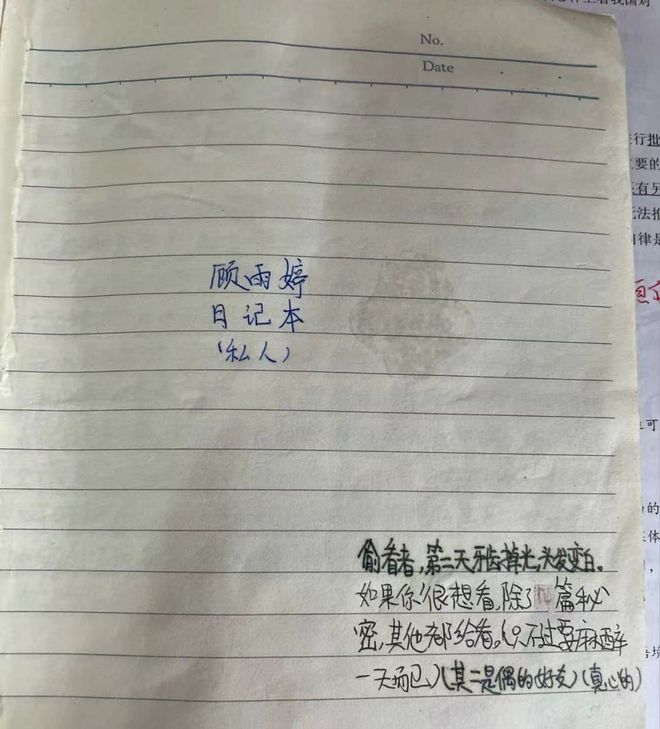 No.
Date
顾雨婷
日记本
(私人)
偷看者,第二天牙齿掉光,头发变白。
如果你很想看,除了 篇秘
密,其他都给看。(只不过要麻醉
一天而已)(其二是偶的好友)(真心的)
行批
要的
有另
无法推
律是
可
的
体
境